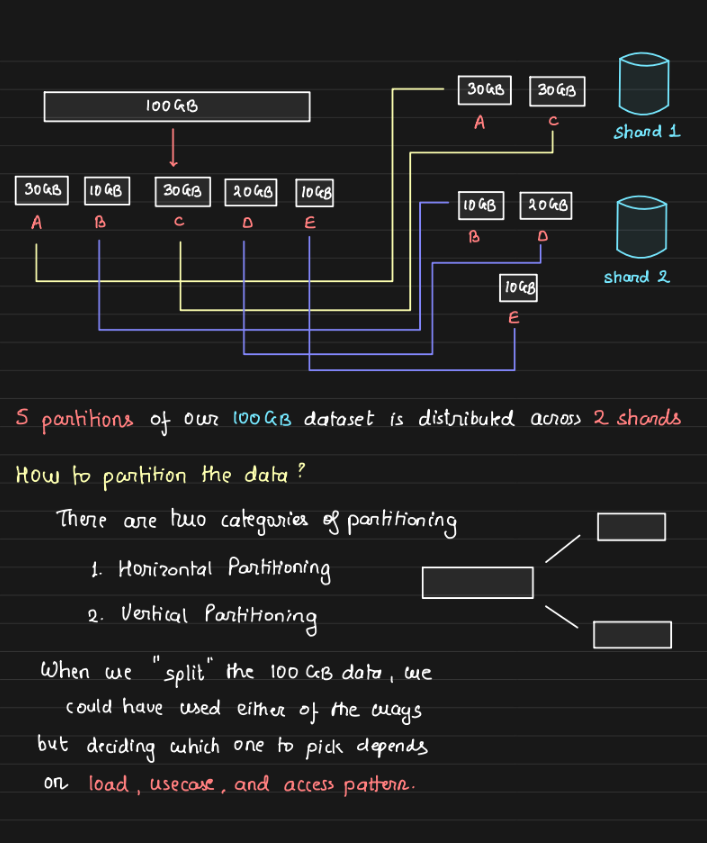 100GB
30GB 10GB 30GB 20GB 10GB
A B C D E
30GB 30GB
A C
shard 1
10GB 20GB
B D
shard 2
10GB
E
5 partitions of our 100GB dataset is distributed across 2 shards
How to partition the data?
There are two categories of partitioning
1. Horizontal Partitioning
2. Vertical Partitioning
When we "split" the 100GB data, we
could have used either of the ways
but deciding which one to pick depends
on load, usecase, and access pattern.